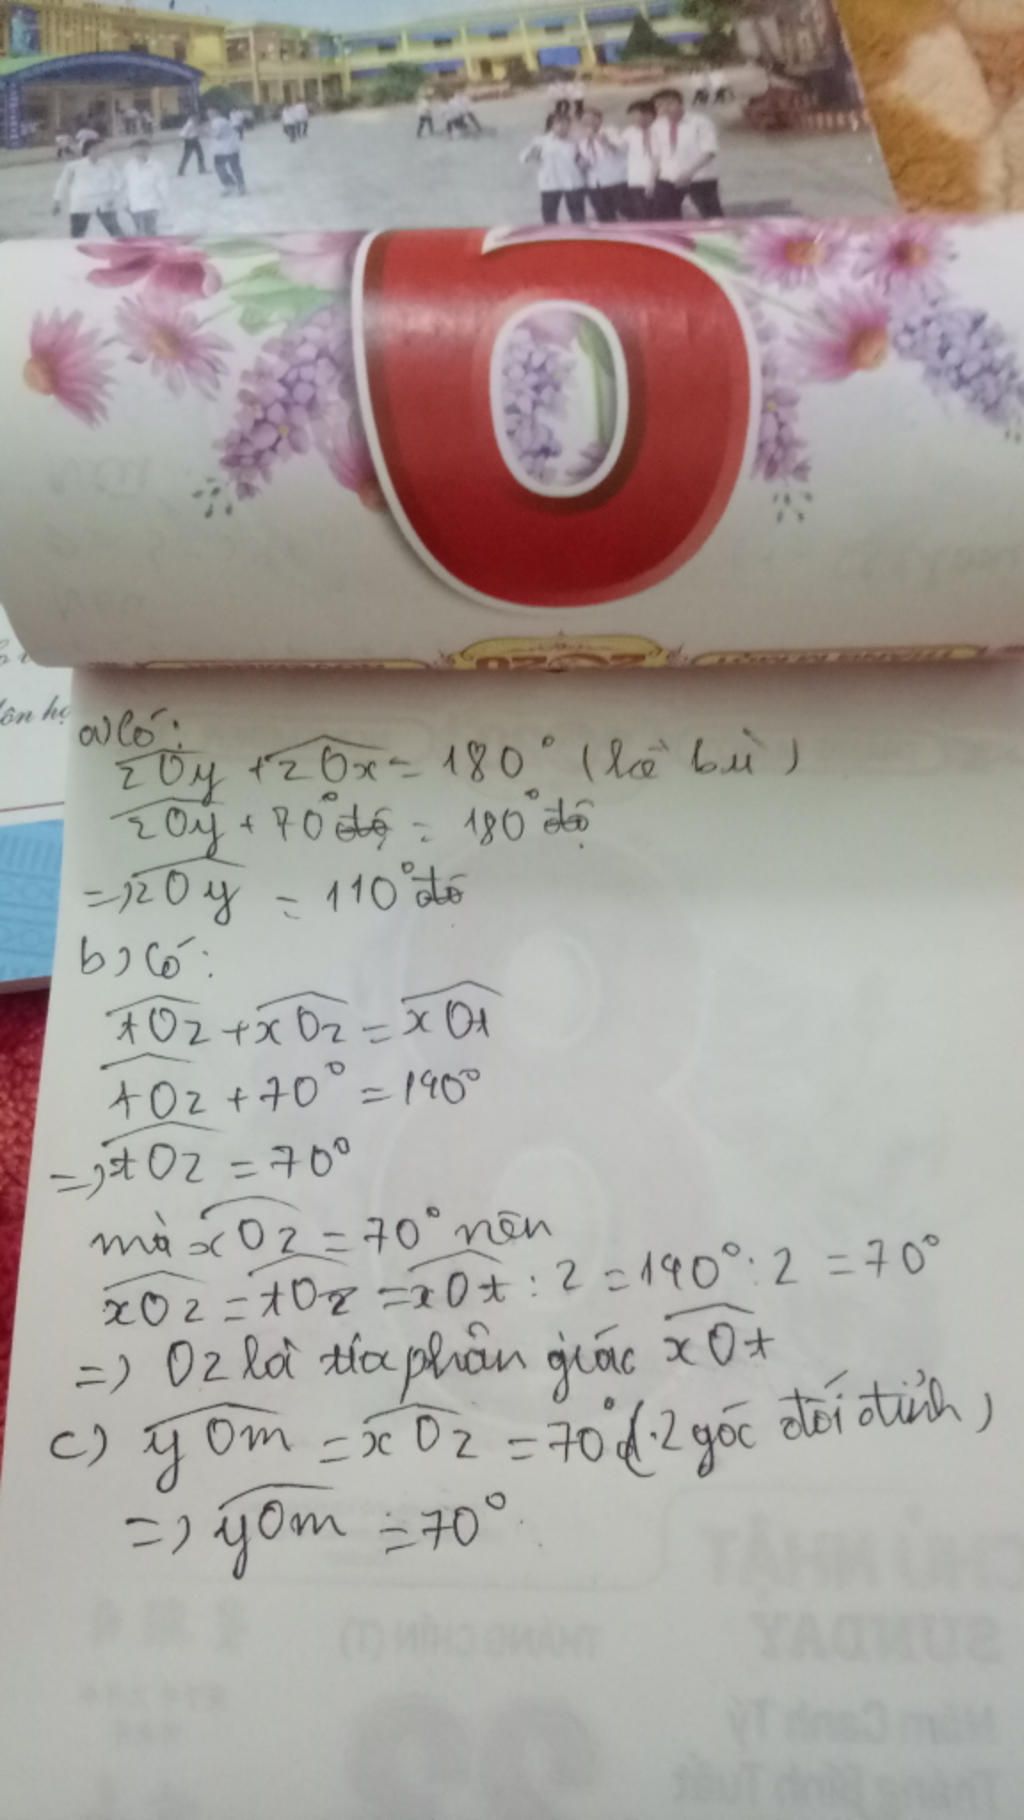 6
ôn họ
a) Có:
zOy + zOx = 180° (kề bù)
zOy + 70° độ = 180° độ
=> zOy = 110° độ
b) Có:
tOz + xOz = xOt
tOz + 70° = 140°
=> tOz = 70°
mà xOz = 70° nên
xOz = tOz = xOt : 2 = 140° : 2 = 70°
=> Oz là tia phân giác xOt
c) yOm = xOz = 70° (2 góc đối đỉnh)
=> yOm = 70°
CHỦ NHẬT
SUNDAY
THÁNG CHÍN (T)
Năm Canh Tý
Tháng Bính Tuất